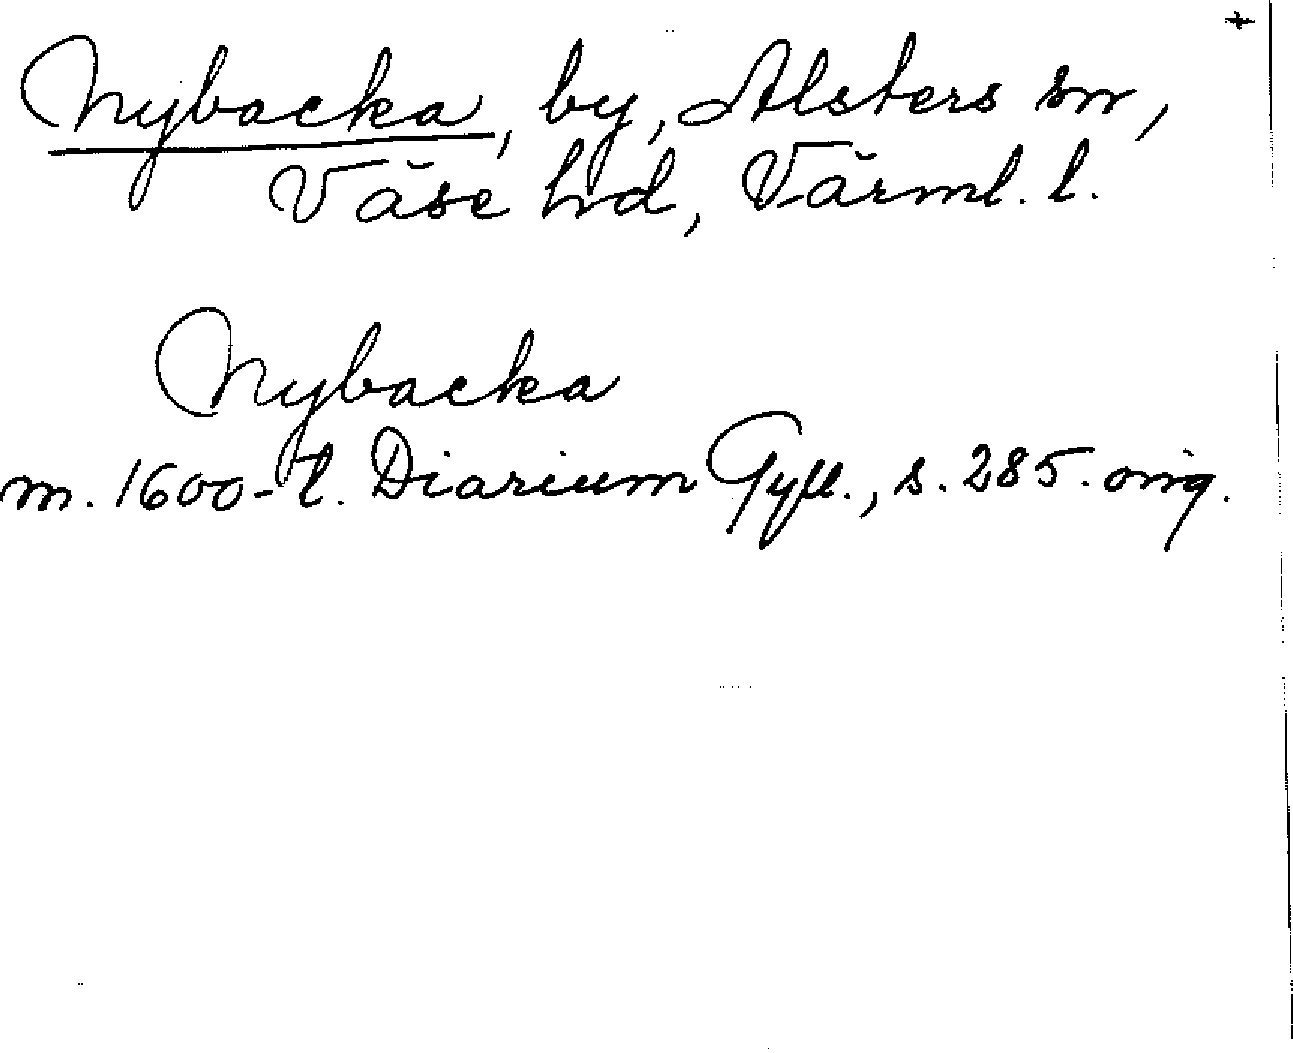 +
Nybacka, by, Alsters sn,
Väse hd, Värml. l.
Nybacka
m. 1600-t. Diarium Gyll., s. 285. orig.